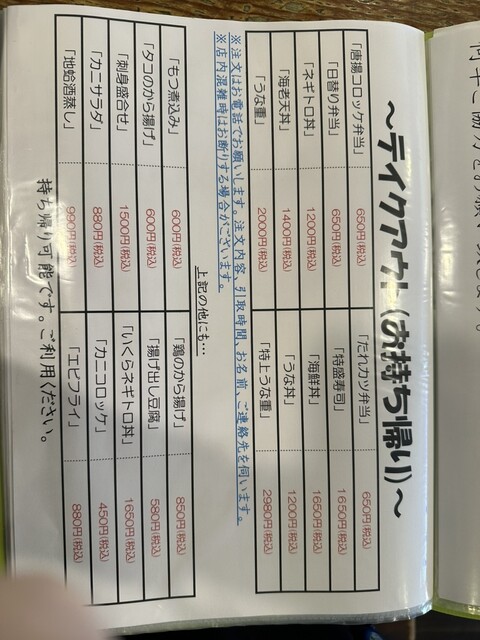 ～テイクアウト(お持ち帰り)～
「唐揚コロッケ弁当」 650円(税込) 「たれカツ弁当」 650円(税込)
「日替り弁当」 650円(税込) 「特盛寿司」 1650円(税込)
「ネギトロ丼」 1200円(税込) 「海鮮丼」 1650円(税込)
「海老天丼」 1400円(税込) 「うな丼」 1200円(税込)
「うな重」 2000円(税込) 「特上うな重」 2980円(税込)
※注文はお電話でお願いします。注文内容、引取時間、お名前、ご連絡先を伺います。
※店内混雑時はお断りする場合がございます。
上記の他にも…
「もつ煮込み」 600円(税込) 「鶏のから揚げ」 850円(税込)
「タコのから揚げ」 600円(税込) 「揚げ出し豆腐」 580円(税込)
「刺身盛合せ」 1500円(税込) 「いくらネギトロ丼」 1650円(税込)
「カニサラダ」 880円(税込) 「カニコロッケ」 450円(税込)
「地蛤酒蒸し」 990円(税込) 「エビフライ」 880円(税込)
持ち帰り可能です。ご利用ください。